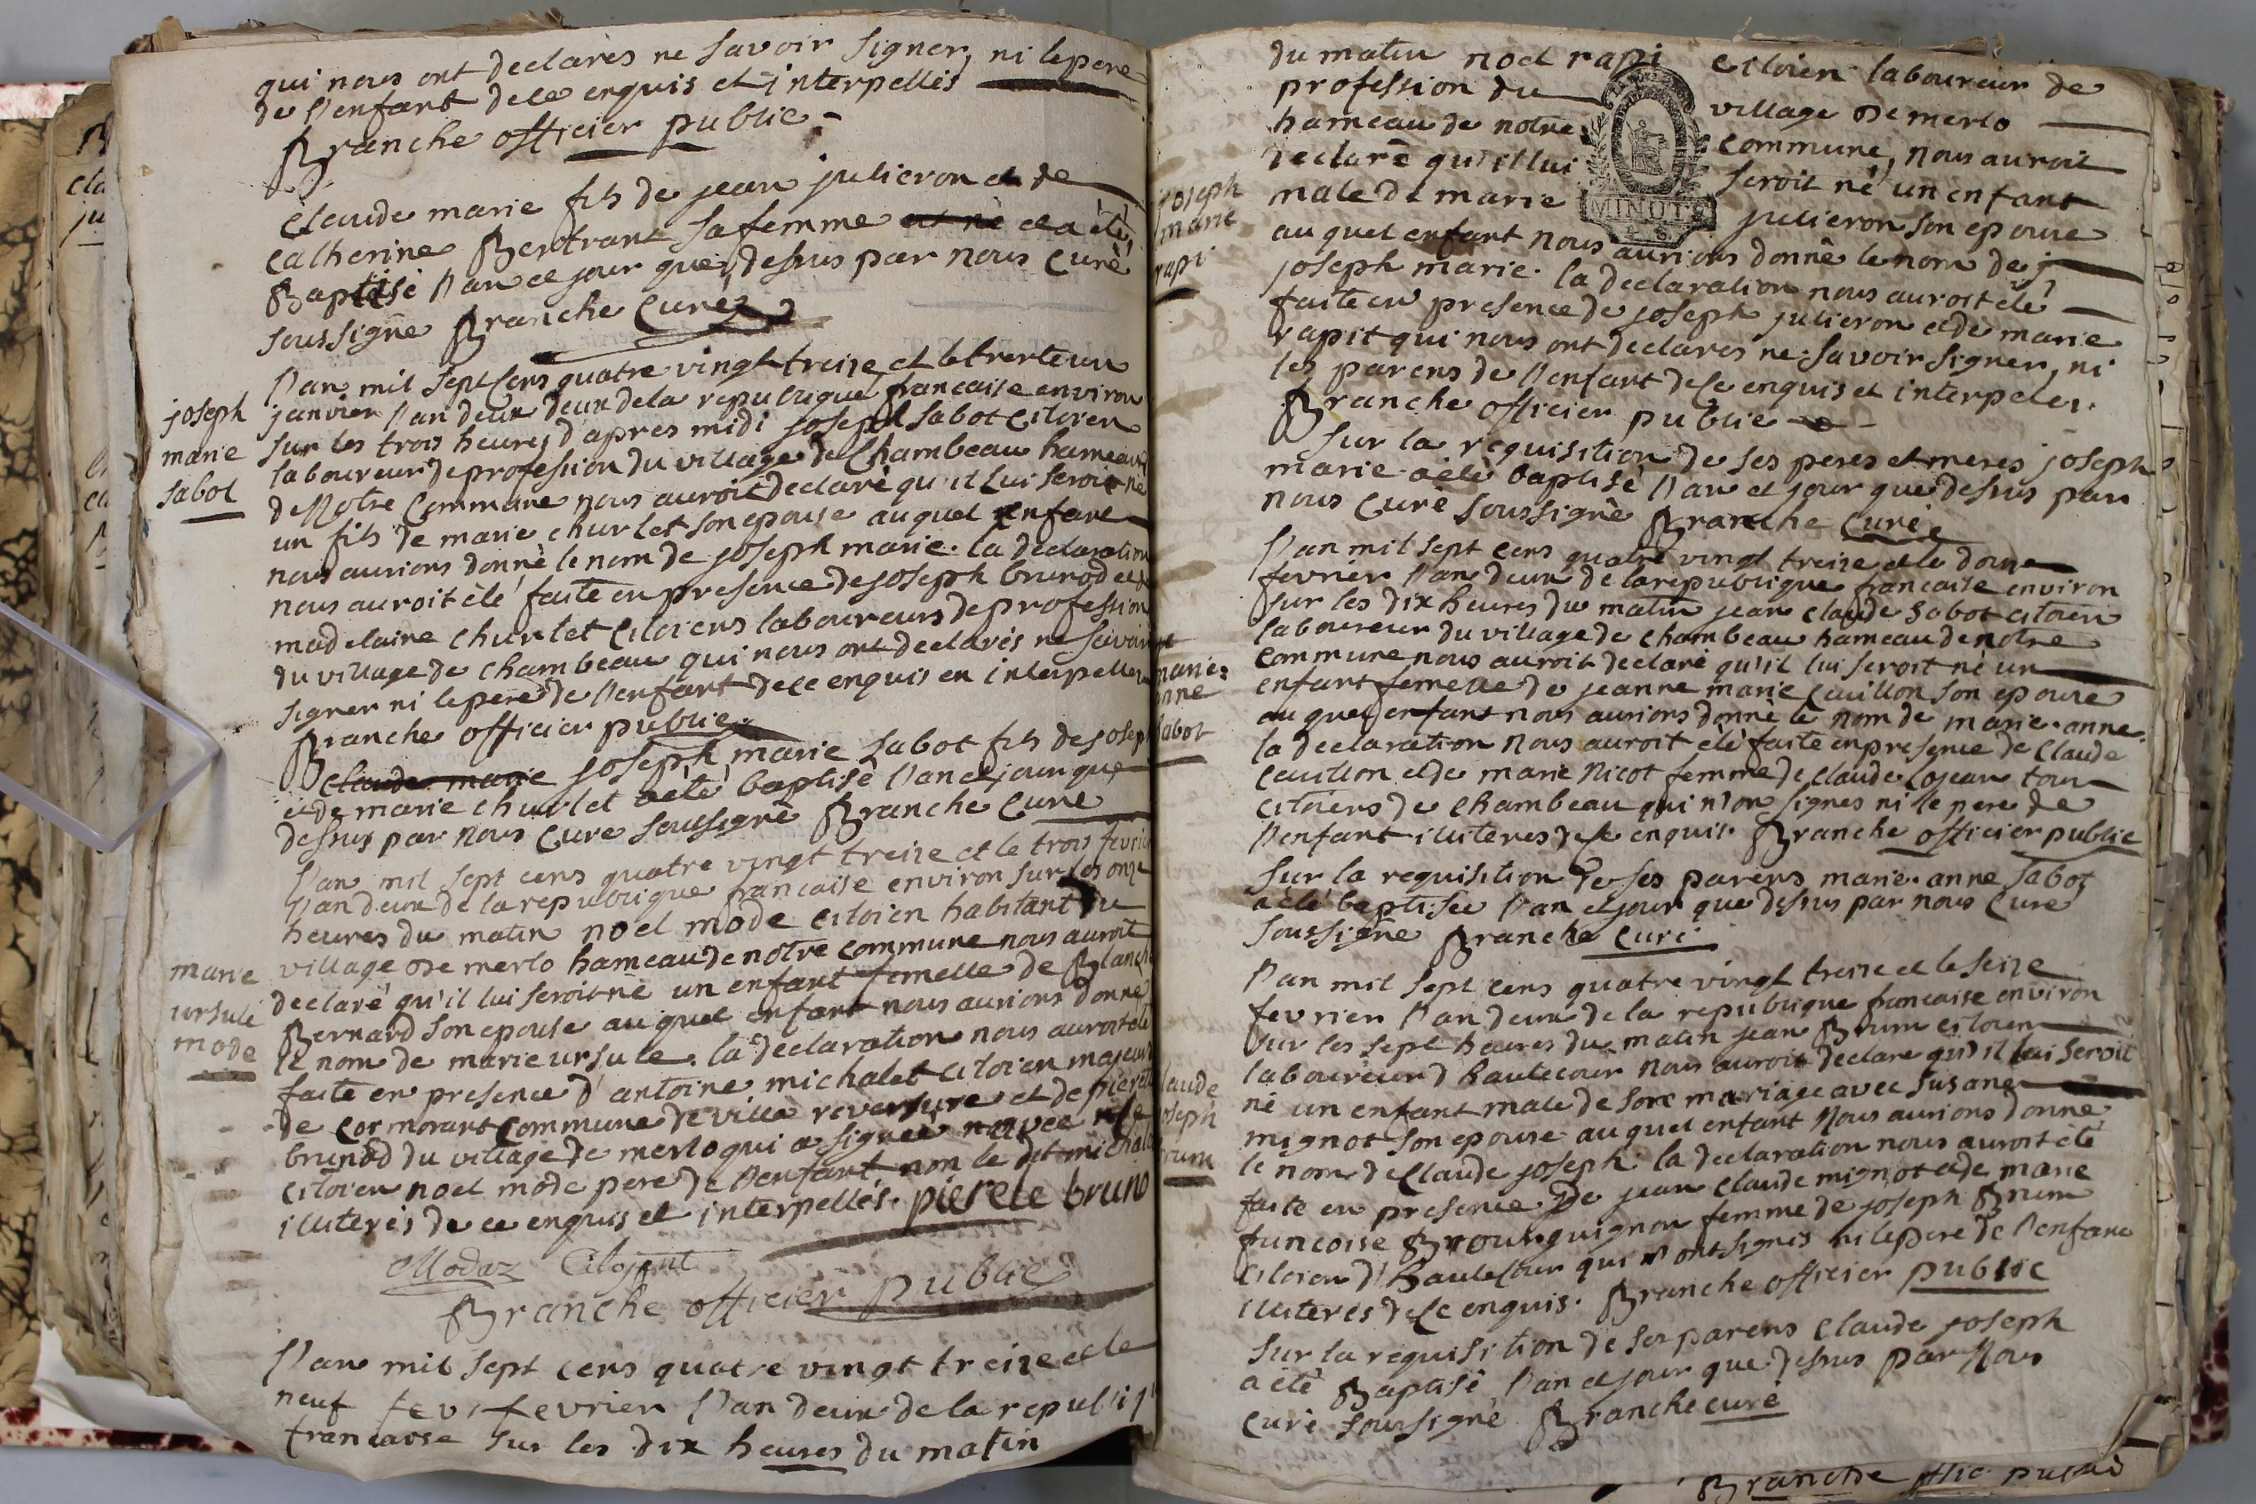 qui nous ont declarés ne savoir signer, ni le pere
de l'enfant de ce enquis et interpellés
Branche officier public
claude marie fils de jean julieron et de
catherine Bertrant sa femme et né et a été
Baptisé l'an ce jour que dessus par nous curé
soussigné Branche curé
l'an mil sept cens quatre vingt treize et le trente un
janvier l'an deux deux de la republique francaise environ
sur les trois heures d'apres midi joseph sabot citoien
laboureur de profession du village de chambeau hameau
de Notre Commune nous auroit declaré qu'il lui seroit né
un fils de marie churlet son epouse auquel enfant
nous aurions donné le nom de joseph marie. la declaration
nous auroit été faite en presence de joseph brunod et de
madelaine churlet citoiens laboureurs de profession
du village de chambeau qui nous ont declarés ne savoir
signer ni le pere de l'enfant de ce enquis en interpellez
Branche officier public
joseph
marie
sabot
claude marie joseph marie sabot fils de joseph
et de marie churlet a été baptisé l'an et jour que
dessus par nous curé soussigné Branche curé
l'an mil sept cens quatre vingt treize et le trois fevrier
l'an deux de la republique francaise environ sur les onze
heures du matin noel mode citoien habitant du
village de merlo hameau de notre commune nous auroit
declaré qu'il lui seroit né un enfant femelle de Blanche
Bernard son epouse auquel enfant nous aurions donné
le nom de marie ursule. la declaration nous auroit été
faite en presence d'antoine michalet citoien majeur
de cormorant commune de villa reversure et de pierete
brunod du village de merlo qui a signée
citoien noel mode pere de l'enfant non le dit michalet
illiterés de ce enquis et interpellés. pierete bruno
marie
ursule
mode
Modaz Citoyent
Branche officier public
l'an mil sept cens quatre vingt treize et le
neuf fev fevrier l'an deux de la republiq
francaise sur les dix heures du matin
du matin noel rapi citoien laboureur de
profession du village de merlo
hameau de notre commune, nous auroit
declaré qu'il lui seroit né un enfant
male de marie julieron son epouse
MINUTE
auquel enfant nous aurions donné le nom de j
joseph marie. la declaration nous auroit été
faite en presence de joseph julieron et de marie
rapit qui nous ont declarés ne savoir signer, ni
les parens de l'enfant de ce enquis et interpelés.
Branche officier public
joseph
marie
rapi
sur la requisition de ses peres et meres joseph
marie a été baptisé l'an et jour que dessus par
nous curé soussigné Branche curé
l'an mil sept cens quatre vingt treize et le douze
fevrier l'an deux de la republique francaise environ
sur les dix heures du matin jean claude sabot citoien
laboureur du village de chambeau hameau de notre
commune nous auroit declaré qu'il lui seroit né un
enfant femelle de jeanne marie cavillon son epouse
auquel enfant nous aurions donné le nom de marie-anne.
la declaration nous auroit été faite en presence de claude
cavillon et de marie Nicot femme de claude cojean tous
citoiens de chambeau qui n'on signés ni le pere de
l'enfant illiterés de ce enquis. Branche officier public
marie
anne
sabot
sur la requisition de ses parens marie-anne sabot
a été baptisée l'an et jour que dessus par nous curé
soussigné Branche curé
l'an mil sept cens quatre vingt treize et le seize
fevrier l'an deux de la republique francaise environ
sur les sept heures du matin jean Brum citoien
laboureur d'hautecour nous auroit declaré qu'il lui seroit
né un enfant male de son mariage avec susane
mignot son epouse auquel enfant nous aurions donné
le nom de claude joseph. la declaration nous auroit été
faite en presence de jean claude mignot et de marie
francoise Brourguignon femme de joseph Brum
citoien d'hautecour qui n'ont signés ni le pere de l'enfant
illiterés de ce enquis. Branche officier public
laude
oseph
rum
sur la requisition de ses parens claude joseph
a été Baptisé l'an et jour que dessus par Nous
curé soussigné Branche curé
Branche offic. public